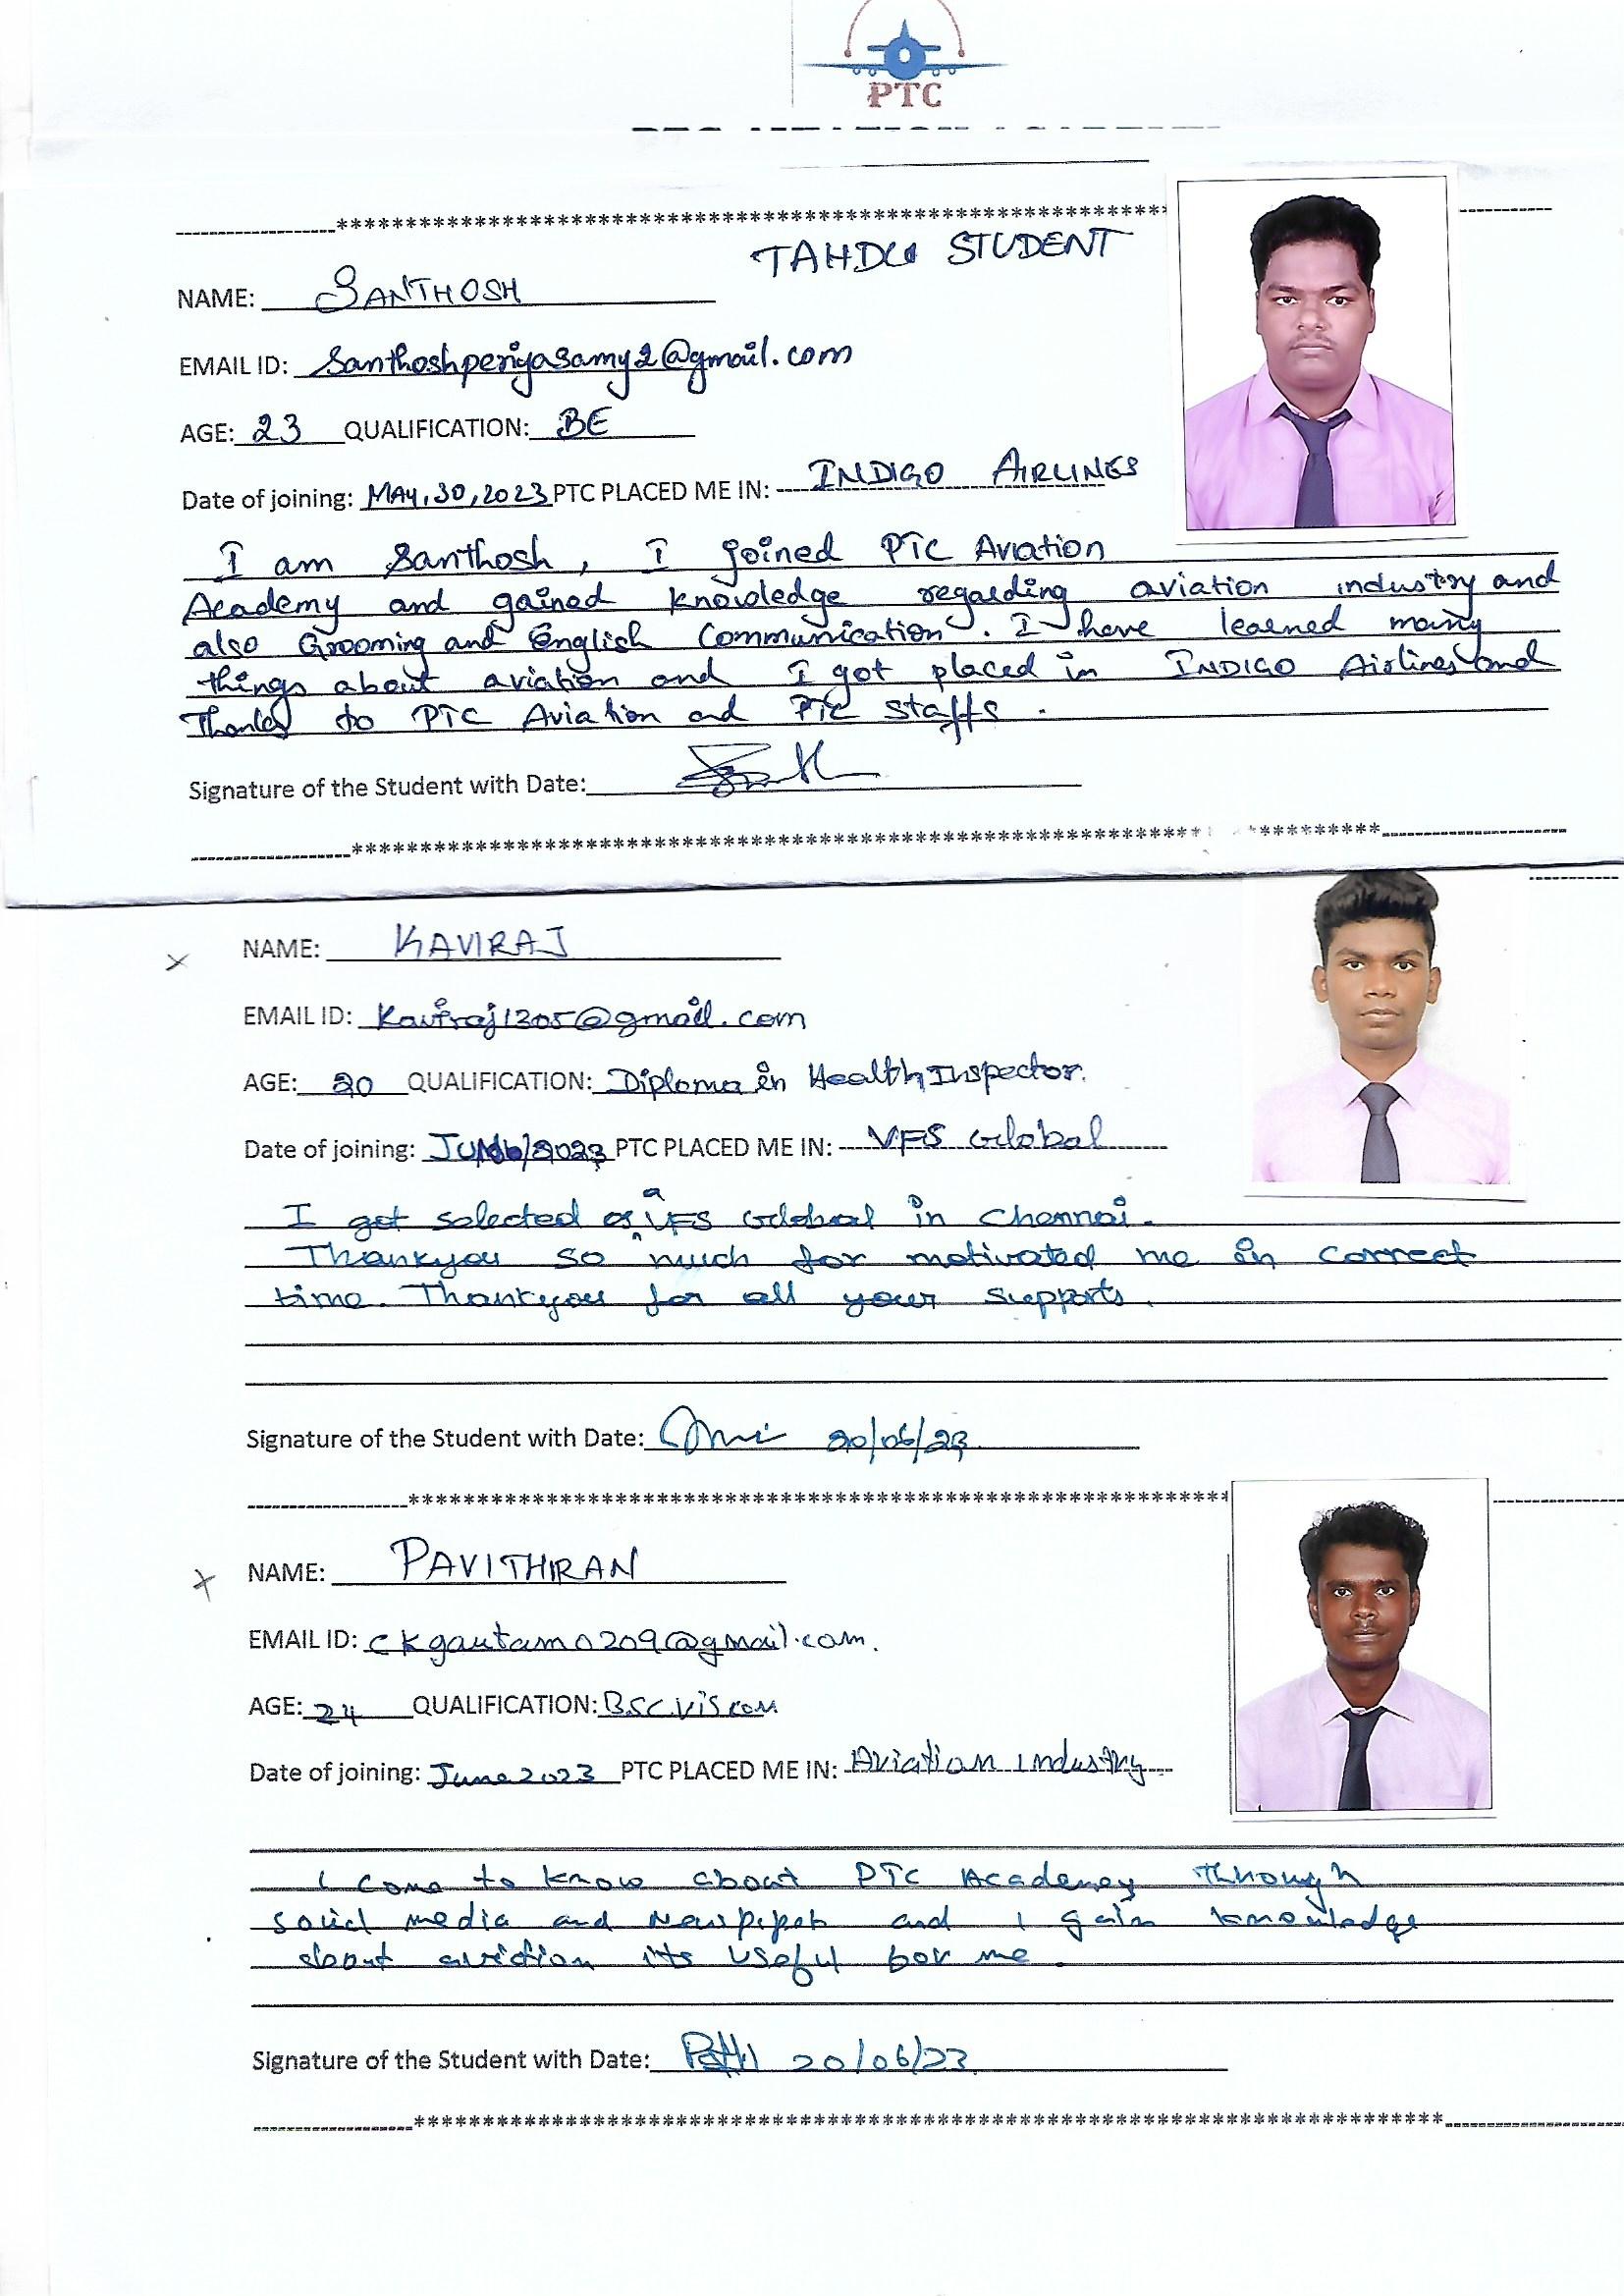 PTC
TAHDCO STUDENT
NAME: SANTHOSH
EMAIL ID: Santhoshperiyasamy2@gmail.com
AGE: 23 QUALIFICATION: BE
Date of joining: MAY,30,2023 PTC PLACED ME IN: INDIGO AIRLINES
I am Santhosh, I joined PTC Aviation
Academy and gained knowledge regarding aviation industry and
also Grooming and English Communication. I have learned many
things about aviation and I got placed in INDIGO Airlines and
Thanks to PTC Aviation and PTC Staffs.
Signature of the Student with Date:
NAME: KAVIRAJ
EMAIL ID: Kaviraj1305@gmail.com
AGE: 20 QUALIFICATION: Diploma in Health Inspector.
Date of joining: 2023 PTC PLACED ME IN: VFS Global
I get selected a VFS Global in Chennai.
Thankyou so much for motivated me in correct
time. Thankyou for all your supports.
Signature of the Student with Date: 20/06/23
NAME: PAVITHIRAN
EMAIL ID: ckgautam0209@gmail.com.
AGE: 24 QUALIFICATION: BSC.Viscom
Date of joining: June 2023 PTC PLACED ME IN: Aviation Industry
I come to know about PTC Academy through
social media and Newspaper and I gain knowledge
about aviation its useful for me.
Signature of the Student with Date: 20/06/23